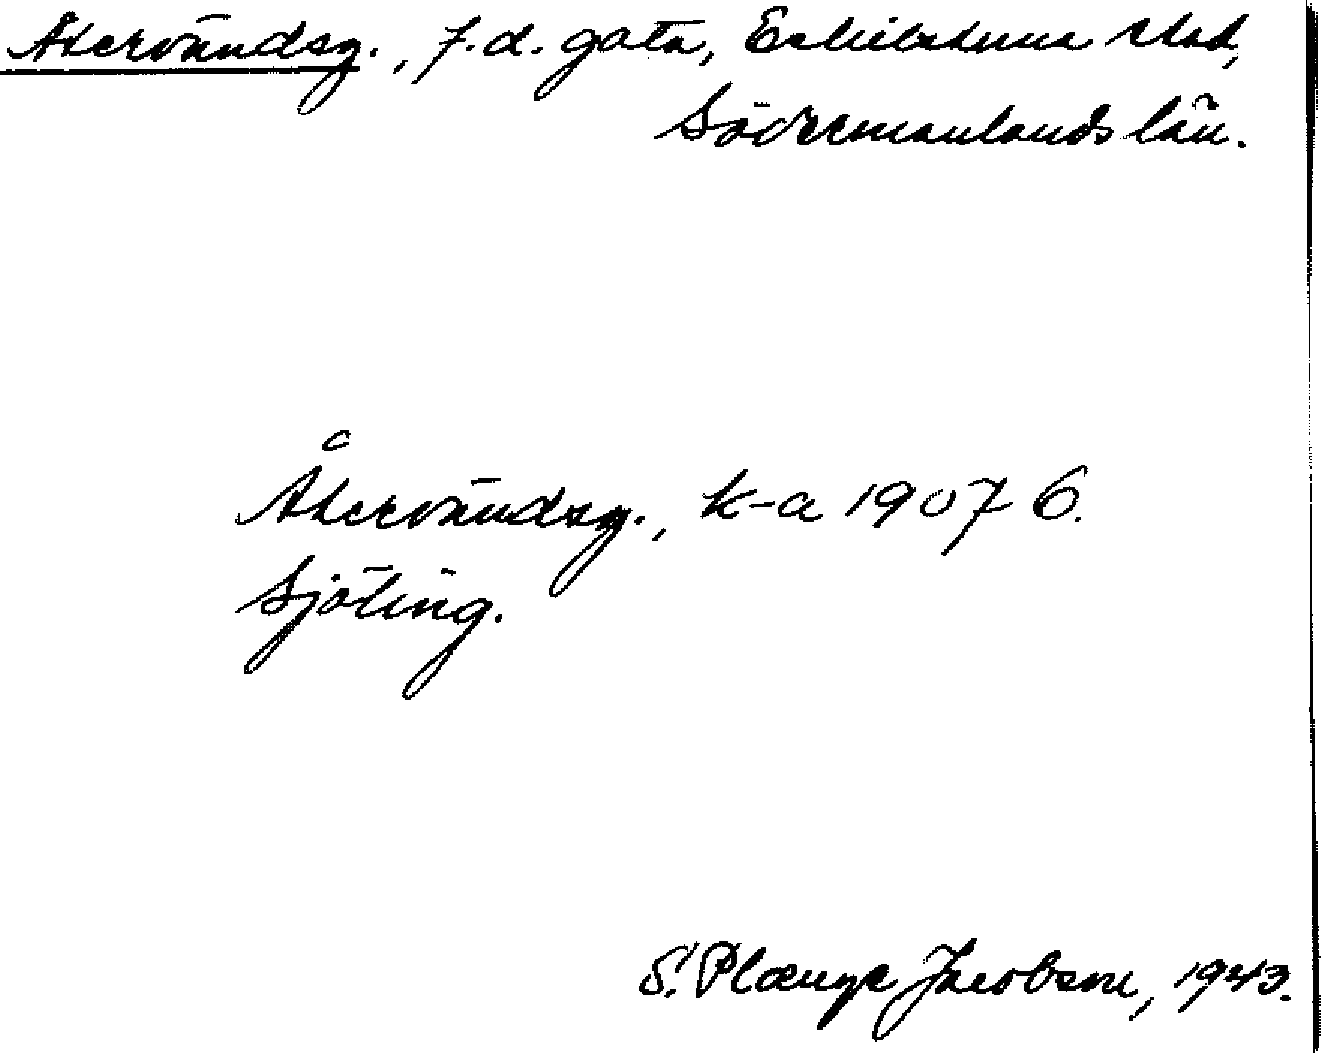 Åkervändsg., f.d. gata, Eskilstuna stad,
Södermanlands län.
Åkervändsg., k-a 1907 6.
Sjöling.
S. Plænge Jacobson, 1943.